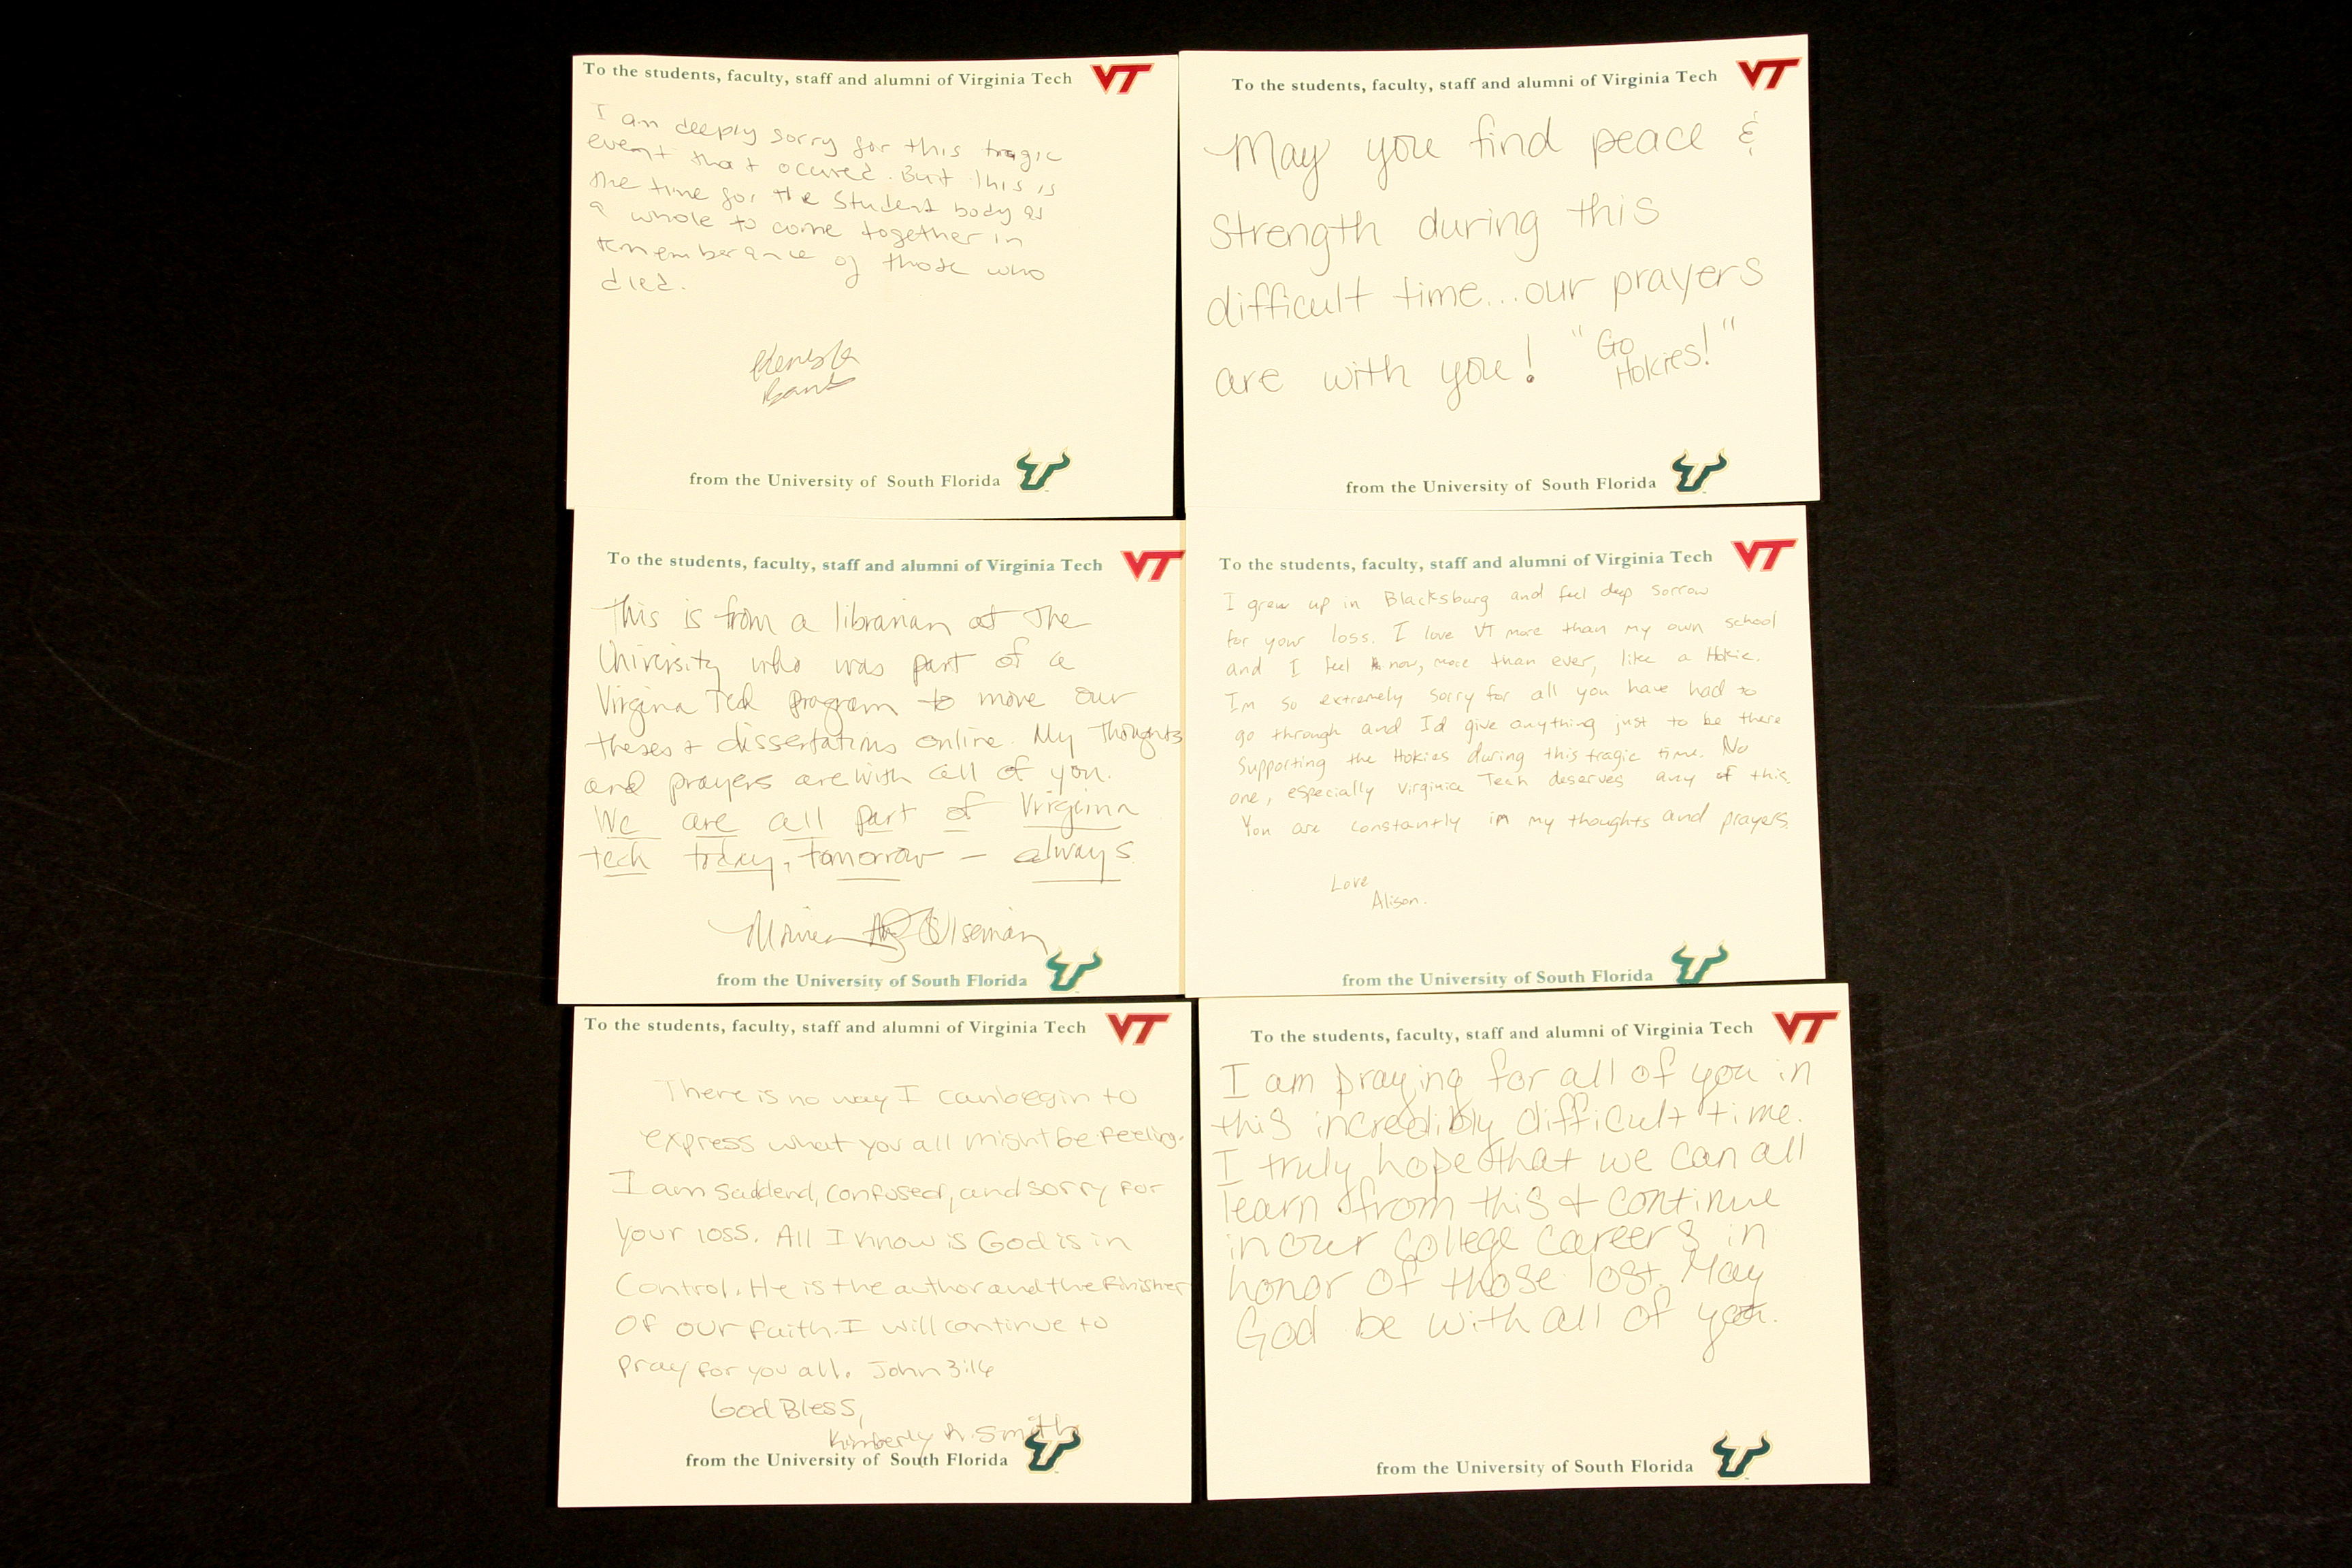 To the students, faculty, staff and alumni of Virginia Tech VT
I am deeply sorry for this tragic
event that ocured. But this is
the time for the Student body as
a whole to come together in
rememberance of those who
died.
from the University of South Florida
To the students, faculty, staff and alumni of Virginia Tech VT
May you find peace &
strength during this
difficult time...our prayers
are with you! "Go
Hokies!"
from the University of South Florida
To the students, faculty, staff and alumni of Virginia Tech VT
This is from a librarian at the
University who was part of a
Virgina Tech program to move our
theses + dissertations online. My thoughts
and prayers are with all of you.
We are all part of Virginia
tech today, tomorrow – always
from the University of South Florida
To the students, faculty, staff and alumni of Virginia Tech VT
I grew up in Blacksburg and feel deep sorrow
for your loss. I love VT more than my own school
and I feel now, more than ever, like a Hokie.
Im so extremely sorry for all you have had to
go through and Id give anything just to be there
supporting the Hokies during this tragic time. No
one, especially Virginia Tech deserves any of this.
You are constantly in my thoughts and prayers.
Love
Alison.
from the University of South Florida
To the students, faculty, staff and alumni of Virginia Tech VT
There is no way I can begin to
express what you all might be feeling.
I am saddend, confused, and sorry for
your loss. All I know is God is in
Control. He is the author and the finisher
of our faith. I will continue to
pray for you all. John 3:16
God Bless,
Kimberly A. Smith
from the University of South Florida
To the students, faculty, staff and alumni of Virginia Tech VT
I am praying for all of you in
this incredibly difficult time.
I truly hope that we can all
learn from this & continue
in our college careers in
honor of those lost. May
God be with all of you.
from the University of South Florida